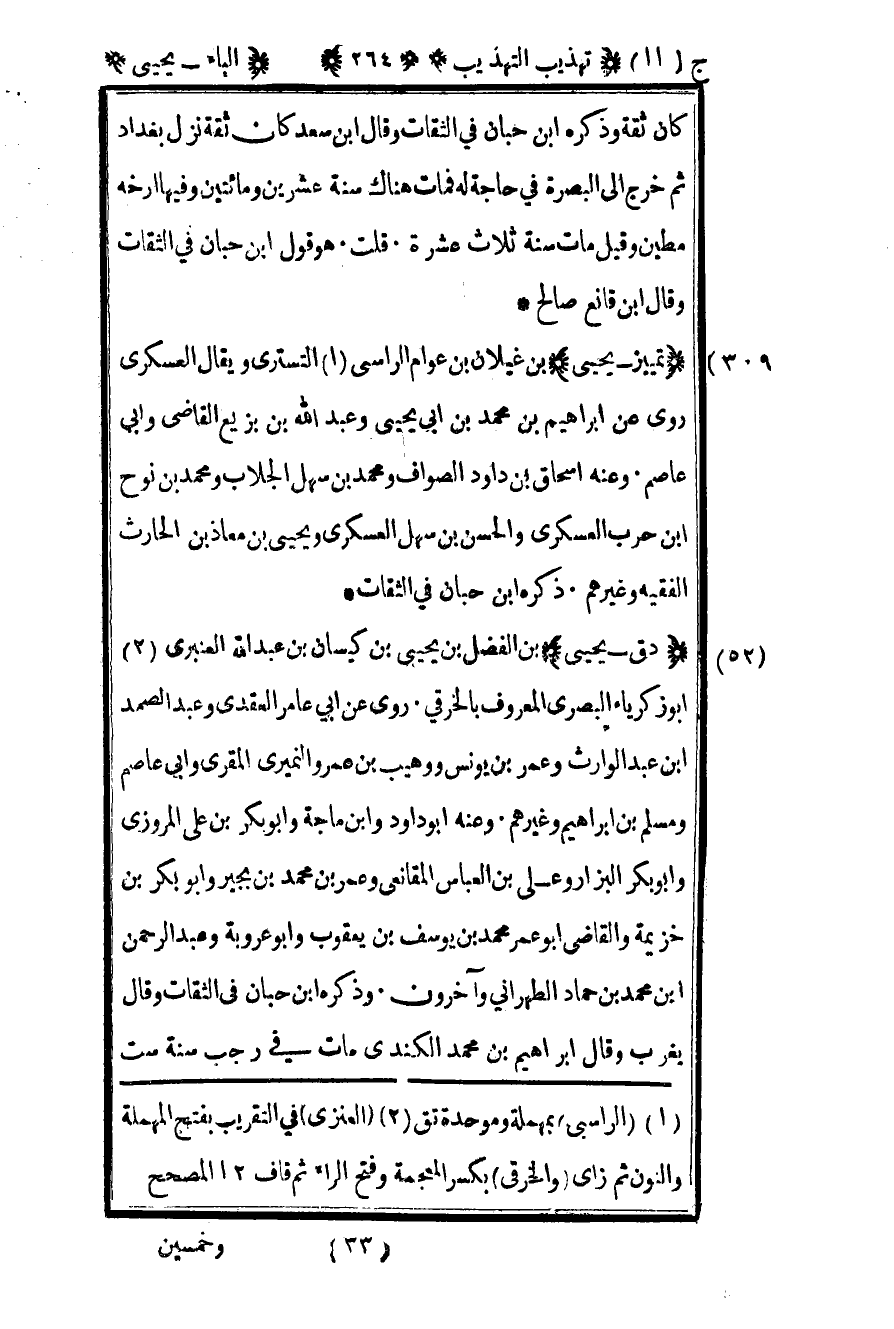 ج (١١) ﴿ تهذيب التهذيب ﴾ ﴿ ٢٦٤ ﴾ ﴿ الياء ـ يحيى ﴾
كان ثقة وذكره ابن حبان في الثقات وقال ابن سعد كان ثقة نزل بغداد
ثم خرج الى البصرة في حاجة له فمات هناك سنة عشرين ومائتين وفيها ارخه
مطين وقيل مات سنة ثلاث عشرة ٠ قلت ٠ هو قول ابن حبان في الثقات
وقال ابن قانع صالح *
(٣٠٩) ﴿ تمييز ـ يحيى ﴾ بن غيلان بن عوام الراسبى (١) التسترى ويقال العسكرى
روى عن ابراهيم بن محمد بن ابي يحيى وعبد الله بن بزيع القاضى وابي
عاصم ٠ وعنه اسحاق بن داود الصواف ومحمد بن سهل الجلاب ومحمد بن نوح
ابن حرب العسكرى والحسن بن سهل العسكرى ويحيى بن معاذ بن الحارث
الفقيه وغيرهم ٠ ذكره ابن حبان في الثقات *
(٥٢) ﴿ دق ـ يحيى ﴾ بن الفضل بن يحيى بن كيسان بن عبدالله العنبرى (٢)
ابوزكرياء البصرى المعروف بالخرقي ٠ روى عن ابي عامر العقدى وعبد الصمد
ابن عبد الوارث وعمر بن يونس ووهيب بن عمرو النميرى المقرى وابي عاصم
ومسلم بن ابراهيم وغيرهم ٠ وعنه ابوداود وابن ماجة وابوبكر بن على المروزى
وابوبكر البزار وعـلى بن العباس المقانعى وعمر بن محمد بن بجير وابوبكر بن
خزيمة والقاضى ابو عمر محمد بن يوسف بن يعقوب وابوعروبة وعبد الرحمن
ابن محمد بن حماد الطهراني وآخرون ٠ وذكره ابن حبان فى الثقات وقال
يغرب وقال ابراهيم بن محمد الكندى مات في رجب سنة ست
(١) (الراسبى) بمهملة وموحدة تق (٢) (العنزى) في التقريب بفتح المهملة
والنون ثم زاى (والخرقى) بكسر المعجمة وفتح الراء ثم قاف ١٢ المصحح
(٣٣) وخمسين